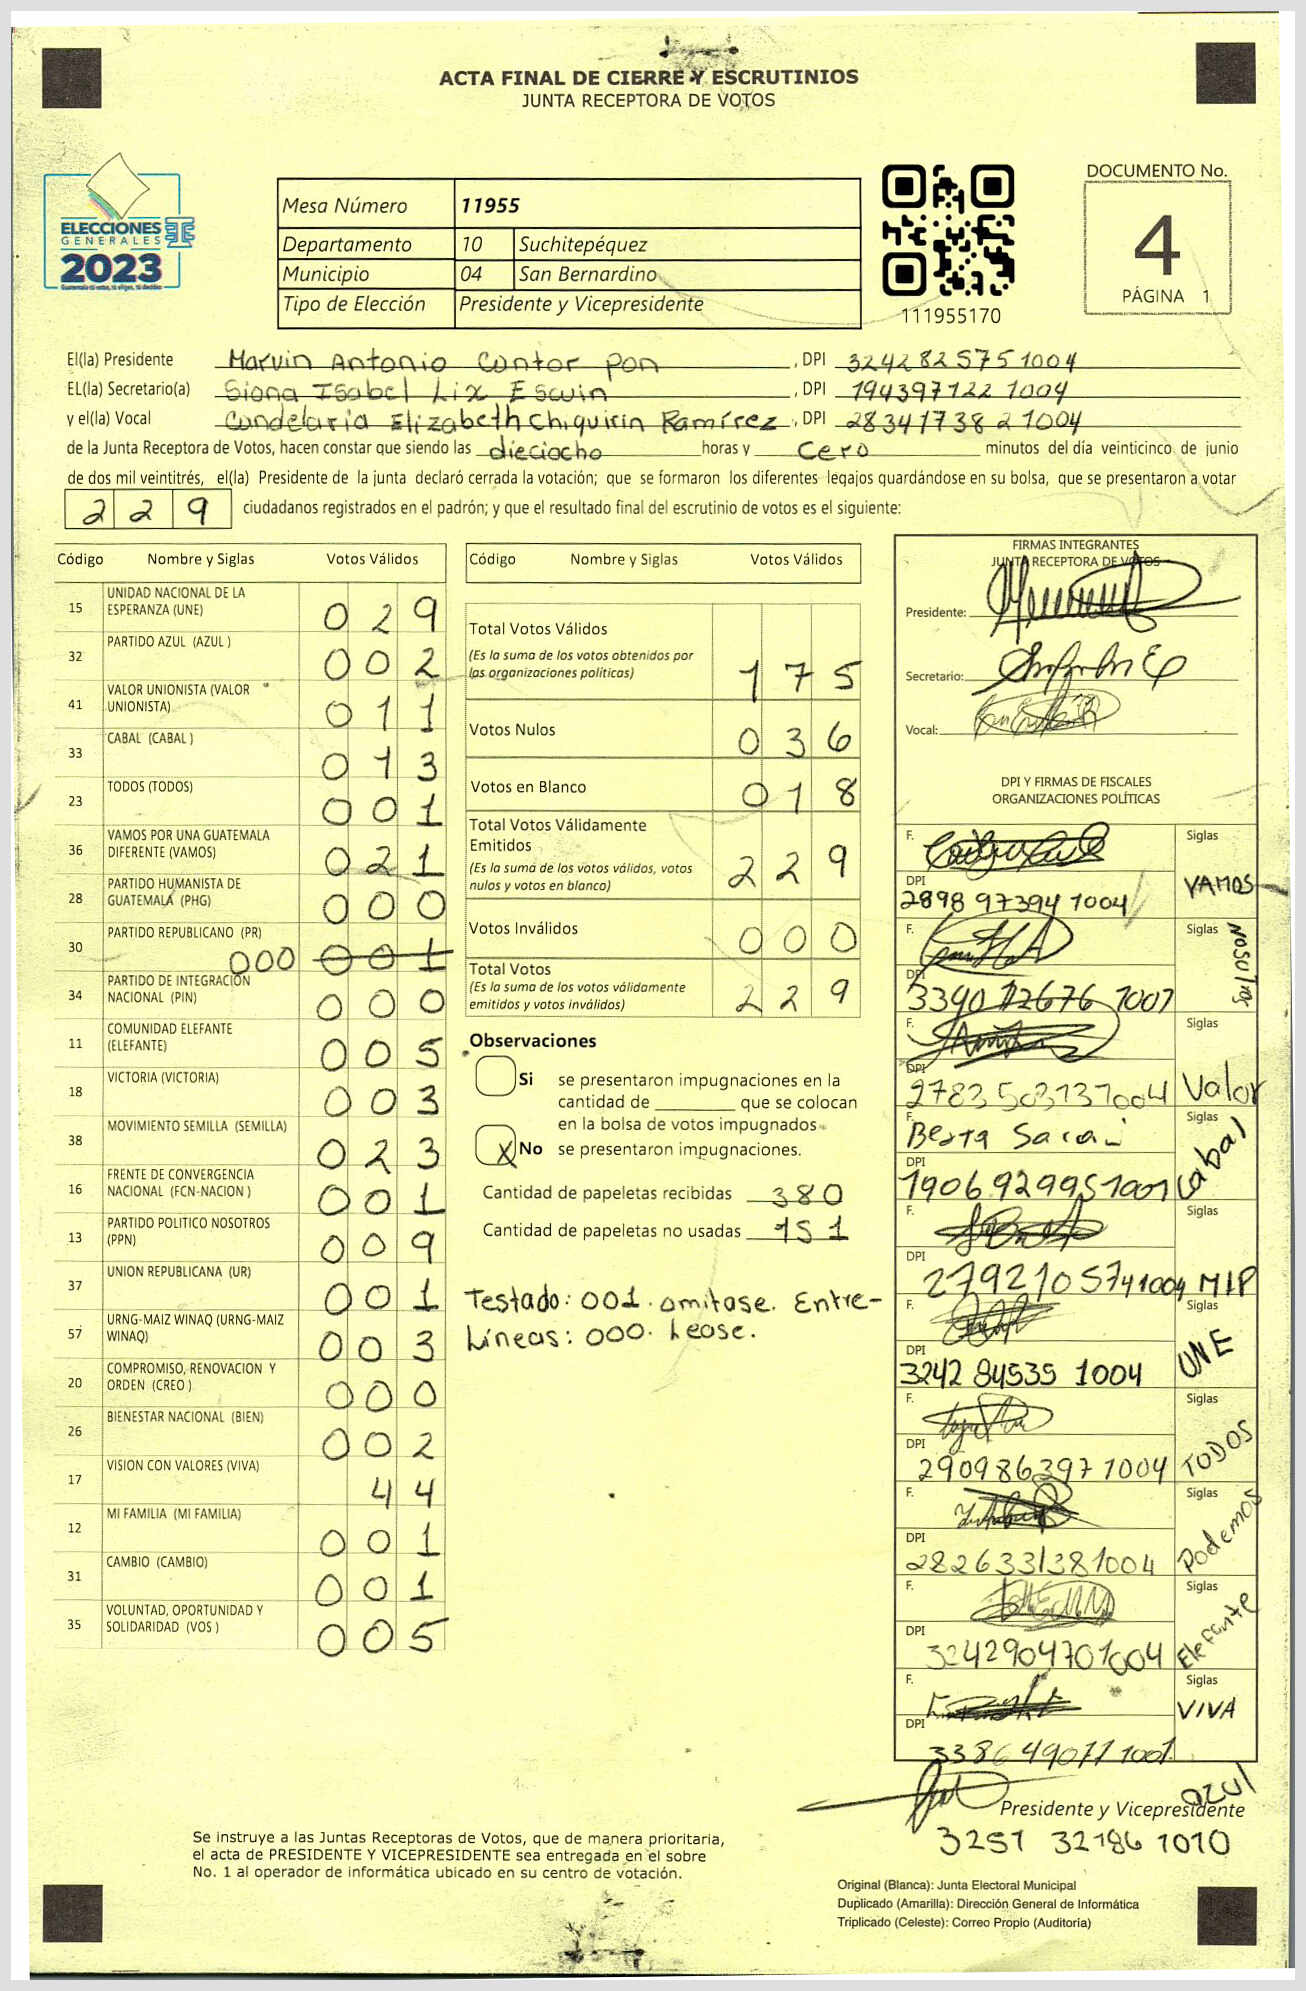 ACTA FINAL DE CIERRE Y ESCRUTINIOS
JUNTA RECEPTORA DE VOTOS
ELECCIONES
GENERALES
2023
Mesa Número 11955
Departamento 10 Suchitepéquez
Municipio 04 San Bernardino
Tipo de Elección Presidente y Vicepresidente
111955170
DOCUMENTO No.
4
PÁGINA 1
El(la) Presidente Marvin Antonio Contor Pon, DPI 3242825751004
EL(la) Secretario(a) Siona Isabel Lix Escuin, DPI 194397122 1004
y el(la) Vocal Candelaria Elizabeth Chiquirin Ramírez, DPI 28341738 2 1004
de la Junta Receptora de Votos, hacen constar que siendo las dieciocho horas y Cero minutos del día veinticinco de junio
de dos mil veintitrés, el(la) Presidente de la junta declaró cerrada la votación; que se formaron los diferentes legajos guardándose en su bolsa, que se presentaron a votar
2 2 9 ciudadanos registrados en el padrón; y que el resultado final del escrutinio de votos es el siguiente:
Código Nombre y Siglas Votos Válidos
15 UNIDAD NACIONAL DE LA ESPERANZA (UNE) 0 2 9
32 PARTIDO AZUL (AZUL ) 0 0 2
41 VALOR UNIONISTA (VALOR UNIONISTA) 0 1 1
33 CABAL (CABAL ) 0 1 3
23 TODOS (TODOS) 0 0 1
36 VAMOS POR UNA GUATEMALA DIFERENTE (VAMOS) 0 2 1
28 PARTIDO HUMANISTA DE GUATEMALA (PHG) 0 0 0
30 PARTIDO REPUBLICANO (PR) 000 0 0 1
34 PARTIDO DE INTEGRACIÓN NACIONAL (PIN) 0 0 0
11 COMUNIDAD ELEFANTE (ELEFANTE) 0 0 5
18 VICTORIA (VICTORIA) 0 0 3
38 MOVIMIENTO SEMILLA (SEMILLA) 0 2 3
16 FRENTE DE CONVERGENCIA NACIONAL (FCN-NACION ) 0 0 1
13 PARTIDO POLITICO NOSOTROS (PPN) 0 0 9
37 UNION REPUBLICANA (UR) 0 0 1
57 URNG-MAIZ WINAQ (URNG-MAIZ WINAQ) 0 0 3
20 COMPROMISO, RENOVACION Y ORDEN (CREO ) 0 0 0
26 BIENESTAR NACIONAL (BIEN) 0 0 2
17 VISION CON VALORES (VIVA) 4 4
12 MI FAMILIA (MI FAMILIA) 0 0 1
31 CAMBIO (CAMBIO) 0 0 1
35 VOLUNTAD, OPORTUNIDAD Y SOLIDARIDAD (VOS ) 0 0 5
Código Nombre y Siglas Votos Válidos
Total Votos Válidos
(Es la suma de los votos obtenidos por
las organizaciones políticas) 1 7 5
Votos Nulos 0 3 6
Votos en Blanco 0 1 8
Total Votos Válidamente
Emitidos
(Es la suma de los votos válidos, votos
nulos y votos en blanco) 2 2 9
Votos Inválidos 0 0 0
Total Votos
(Es la suma de los votos válidamente
emitidos y votos inválidos) 2 2 9
Observaciones
Si se presentaron impugnaciones en la
cantidad de ________ que se colocan
en la bolsa de votos impugnados
X No se presentaron impugnaciones.
Cantidad de papeletas recibidas 380
Cantidad de papeletas no usadas 151
Testado: 001. omitase. Entre-
Líneas: 000. Lease.
FIRMAS INTEGRANTES
JUNTA RECEPTORA DE VOTOS
Presidente:
Secretario:
Vocal:
DPI Y FIRMAS DE FISCALES
ORGANIZACIONES POLÍTICAS
F. Siglas
DPI 2898 97394 1004 VAMOS
F. Siglas
DPI 3390 12676 1007 Nosotros
F. Siglas
DPI 2783 503731004 Valor
F. Berta Sarai Siglas
DPI 1906 92995 1001 Cabal
F. Siglas
DPI 2792105741004 MLP
F. Siglas
DPI 3242 84535 1004 UNE
F. Siglas
DPI 290986397 1004 TODOS
F. Siglas
DPI 2826331381004 Podemos
F. Siglas
DPI 3242904701004 Elefante
F. Siglas
DPI 3386490771001 VIVA
azul
Presidente y Vicepresidente
3251 32186 1010
Se instruye a las Juntas Receptoras de Votos, que de manera prioritaria,
el acta de PRESIDENTE Y VICEPRESIDENTE sea entregada en el sobre
No. 1 al operador de informática ubicado en su centro de votación.
Original (Blanca): Junta Electoral Municipal
Duplicado (Amarilla): Dirección General de Informática
Triplicado (Celeste): Correo Propio (Auditoría)